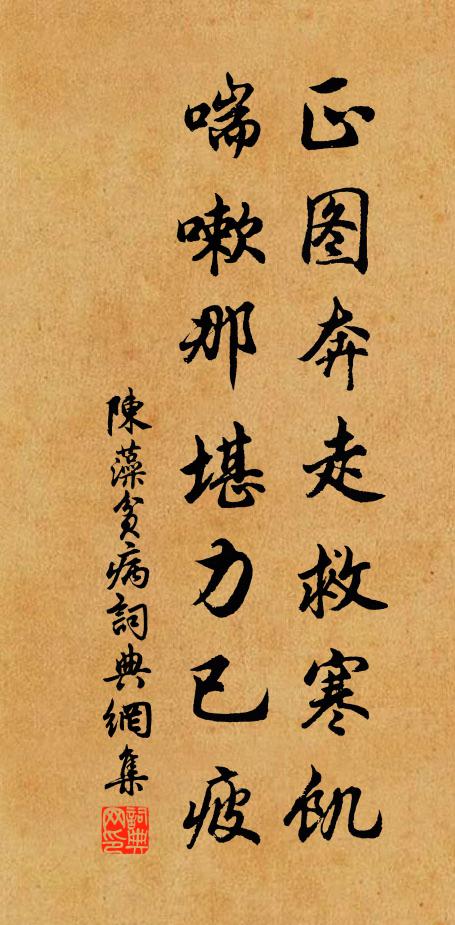 正图奔走救寒飢
喘嗽那堪力已疲
陳藻貧病詞典網集
詞典網印